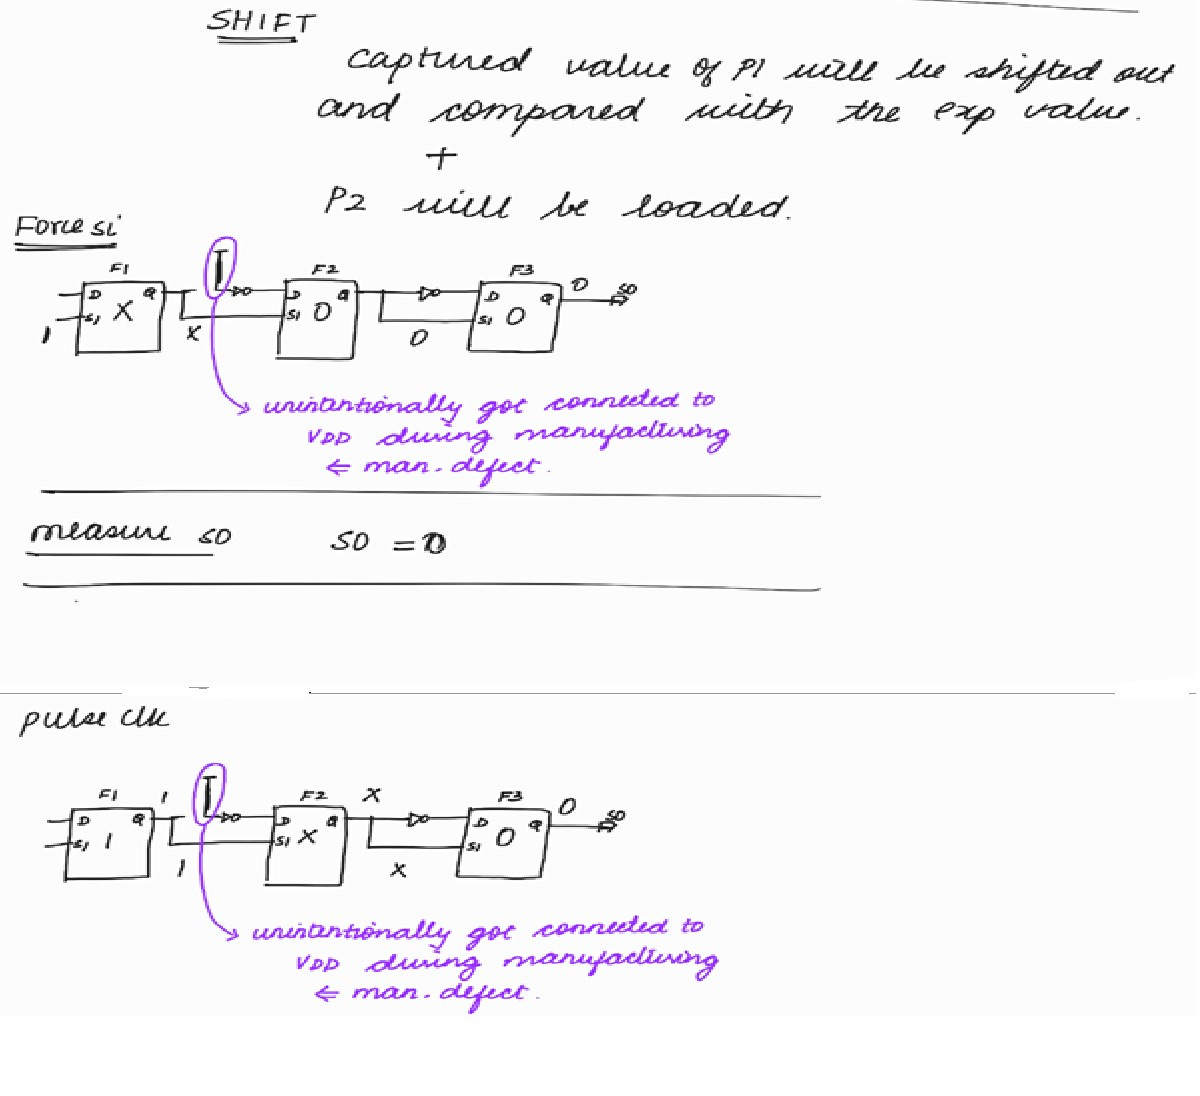 SHIFT
captured value of P1 will be shifted out
and compared with the exp value.
+
P2 will be loaded.
Force si
F1 F2 F3
D Q D Q D Q 0 SO
SI X SI 0 SI 0
1 X 0
unintentionally got connected to
VDD during manufacturing
← man. defect.
measure SO SO = 0
pulse clk
F1 1 F2 X F3 0
D Q D Q D Q SO
SI 1 SI X SI 0
1 X
unintentionally got connected to
VDD during manufacturing
← man. defect.